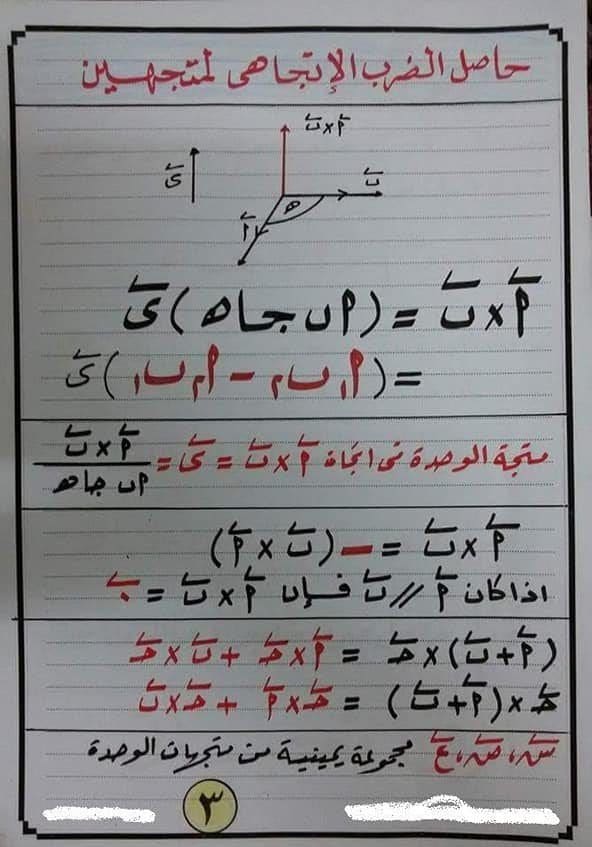 حاصل الضرب الإتجاهى لمتجهين
أ × ب
ى
ب
هـ
أ
أ × ب = (أ ب جا هـ) ى
= (أ₁ ب₂ − أ₂ ب₁) ى
متجة الوحدة فى اتجاة أ × ب = ى = أ × ب / أ ب جا هـ
أ × ب = − (ب × أ)
اذا كان أ // ب فإن أ × ب = .
(أ + ب) × حـ = أ × حـ + ب × حـ
حـ × (أ + ب) = حـ × أ + حـ × ب
س، ص، ع مجموعة يمينية من متجهات الوحدة
٣